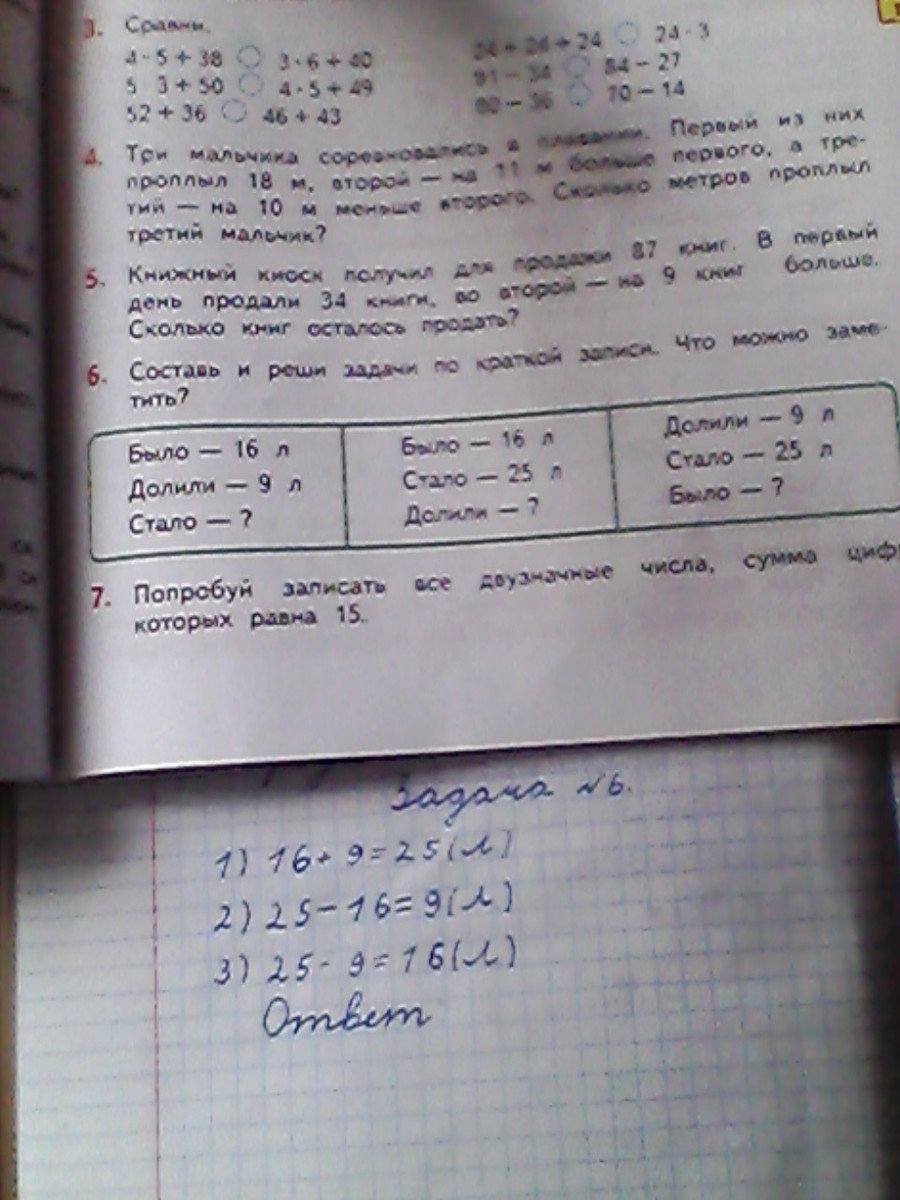 3. Сравни.
4 · 5 + 38 ○ 3 · 6 + 40
24 + 24 + 24 ○ 24 · 3
5 · 3 + 50 ○ 4 · 5 + 49
91 – 34 ○ 84 – 27
52 + 36 ○ 46 + 43
80 – 36 ○ 70 – 14
4. Три мальчика соревновались в плавании. Первый из них
проплыл 18 м, второй — на 11 м больше первого, а тре-
тий — на 10 м меньше второго. Сколько метров проплыл
третий мальчик?
5. Книжный киоск получил для продажи 87 книг. В первый
день продали 34 книги, во второй — на 9 книг больше.
Сколько книг осталось продать?
6. Составь и реши задачи по краткой записи. Что можно заме-
тить?
Было — 16 л
Долили — 9 л
Стало — ?
Было — 16 л
Стало — 25 л
Долили — ?
Долили — 9 л
Стало — 25 л
Было — ?
7. Попробуй записать все двузначные числа, сумма цифр
которых равна 15.
Задача №6.
1) 16 + 9 = 25 (л)
2) 25 – 16 = 9 (л)
3) 25 - 9 = 16 (л)
Ответ